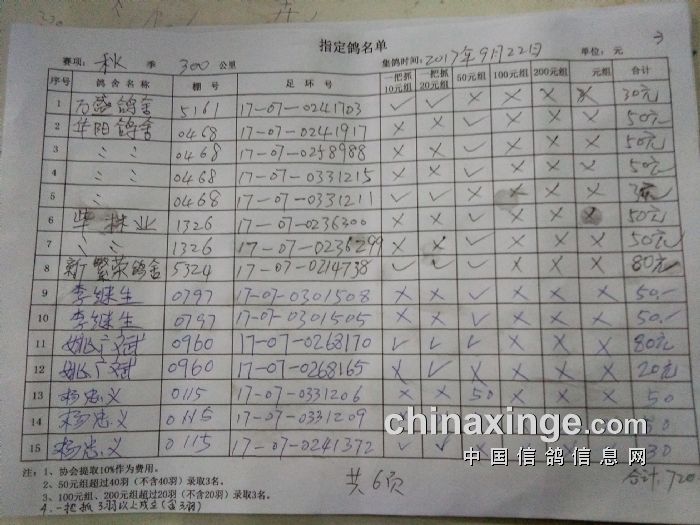 指定鸽名单
3
赛项: 秋 季 300 公里 集鸽时间: 2017年9月22日 单位: 元
序号 鸽舍名称 棚号 足环号 一把抓10元组 一把抓20元组 50元组 100元组 200元组 元组 合计
1 万盛鸽舍 5161 17-07-0241703 ✓ ✓ × × × × 30元
2 华阳鸽舍 0468 17-07-0241917 × × ✓ × × × 50元
3 〃 〃 0468 17-07-0258988 × × ✓ × × × 50元
4 〃 〃 0468 17-07-0331215 × × ✓ × × × 50元
5 〃 0468 17-07-0331211 ✓ ✓ × × × × 30元
6 柴林业 1326 17-07-0236300 × × ✓ × × × 50元
7 〃 〃 1326 17-07-0236299 × × ✓ × × × 50元
8 新繁荣鸽舍 5324 17-07-0214738 ✓ ✓ ✓ × × × 80元
9 李继生 0797 17-07-0301508 × × ✓ × × × 50.-
10 李继生 0797 17-07-0301505 × × ✓ × × × 50.-
11 姚广斌 0960 17-07-0268170 ✓ ✓ ✓ × × × 80元
12 姚广斌 0960 17-07-0268165 × ✓ × × × × 20元
13 杨忠义 0115 17-07-0331206 × × 50 × × × 50
14 杨忠义 0115 17-07-0331209
15 杨忠义 0115 17-07-0241372 ✓ ✓ × 30
chinaxinge.com
中国信鸽信息网
注: 1、协会提取10%作为费用。
2、50元组超过40羽(不含40羽)录取3名。
3、100元组、200元组超过20羽(不含20羽)录取3名。
4.一把抓3羽以上成立(含3羽)
共6页
合计: 720.-